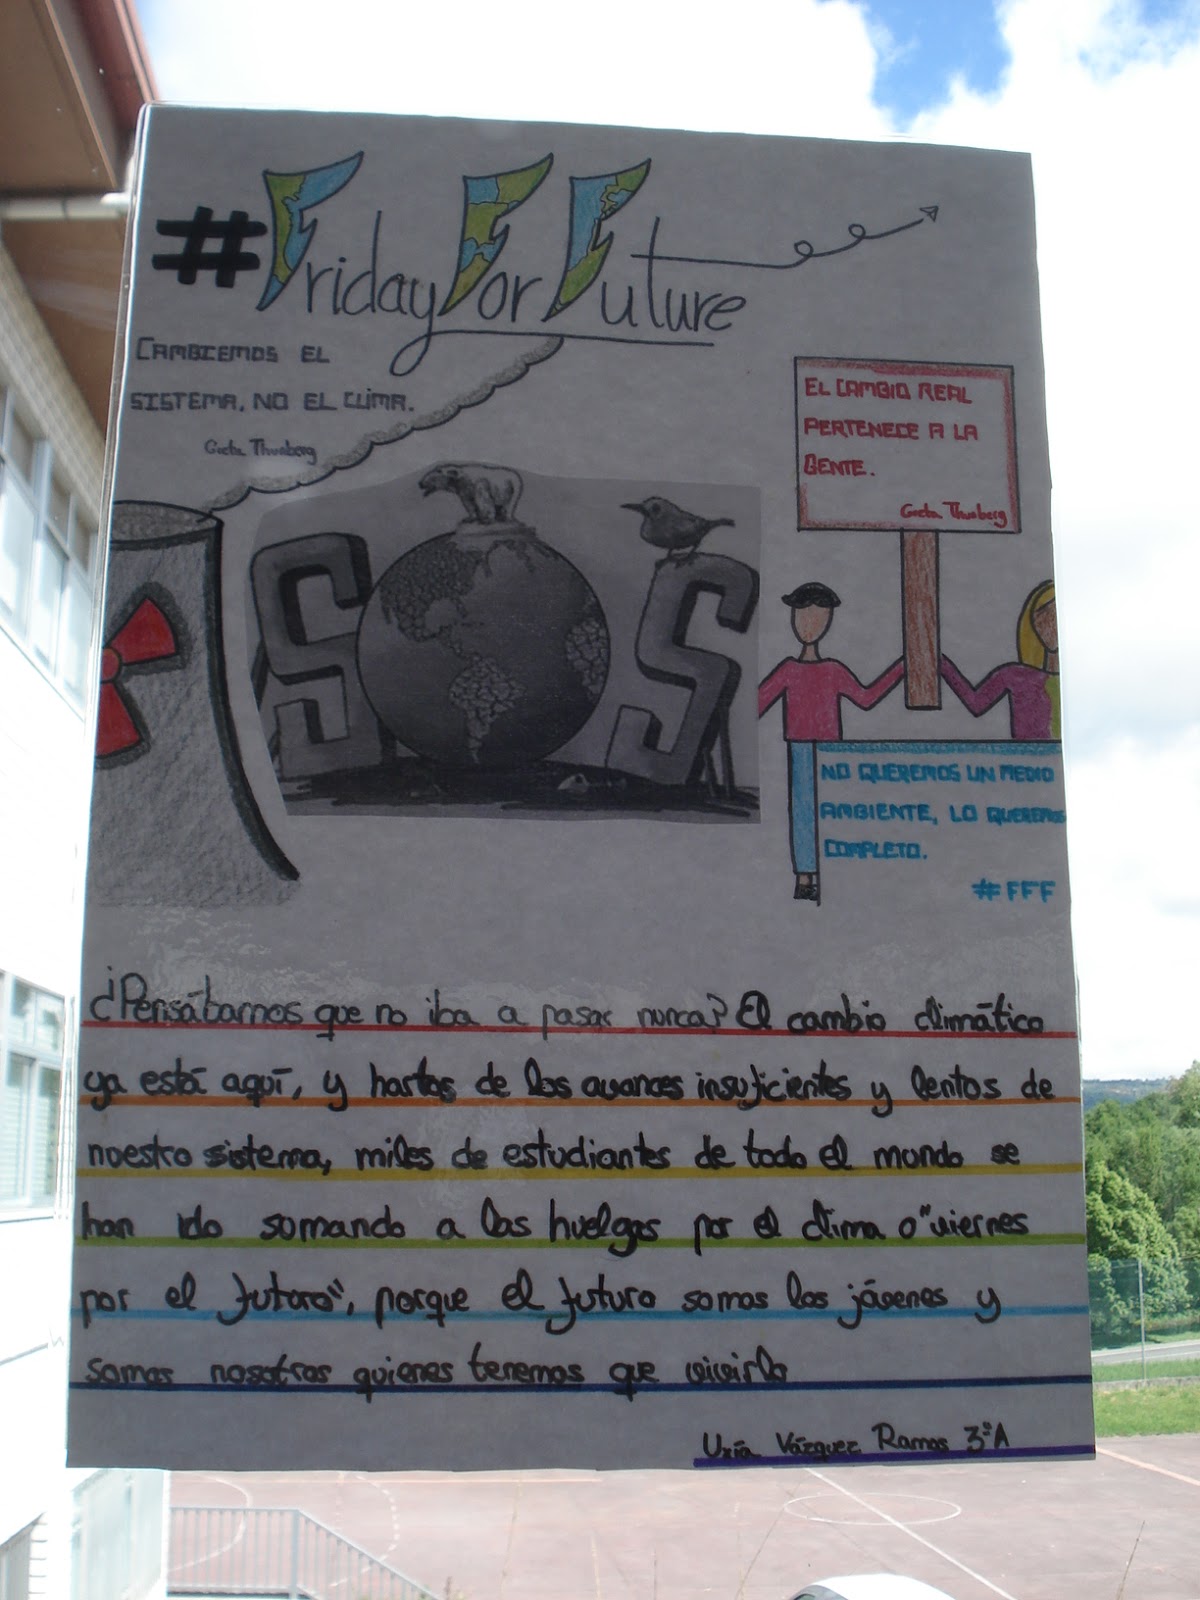 #FridayForFuture
CAMBIEMOS EL
SISTEMA, NO EL CLIMA.
Greta Thunberg
EL CAMBIO REAL
PERTENECE A LA
GENTE.
Greta Thunberg
SOS
NO QUEREMOS UN MEDIO
AMBIENTE, LO QUEREMOS
COMPLETO.
#FFF
¿Pensábamos que no iba a pasar nunca? El cambio climático
ya está aquí, y hartos de los avances insuficientes y lentos de
nuestro sistema, miles de estudiantes de todo el mundo se
han ido somando a las huelgas por el clima o "viernes
por el futuro", porque el futuro somos los jóvenes y
somos nosotros quienes tenemos que vivirlo
Uxía Vázquez Ramos 3ºA